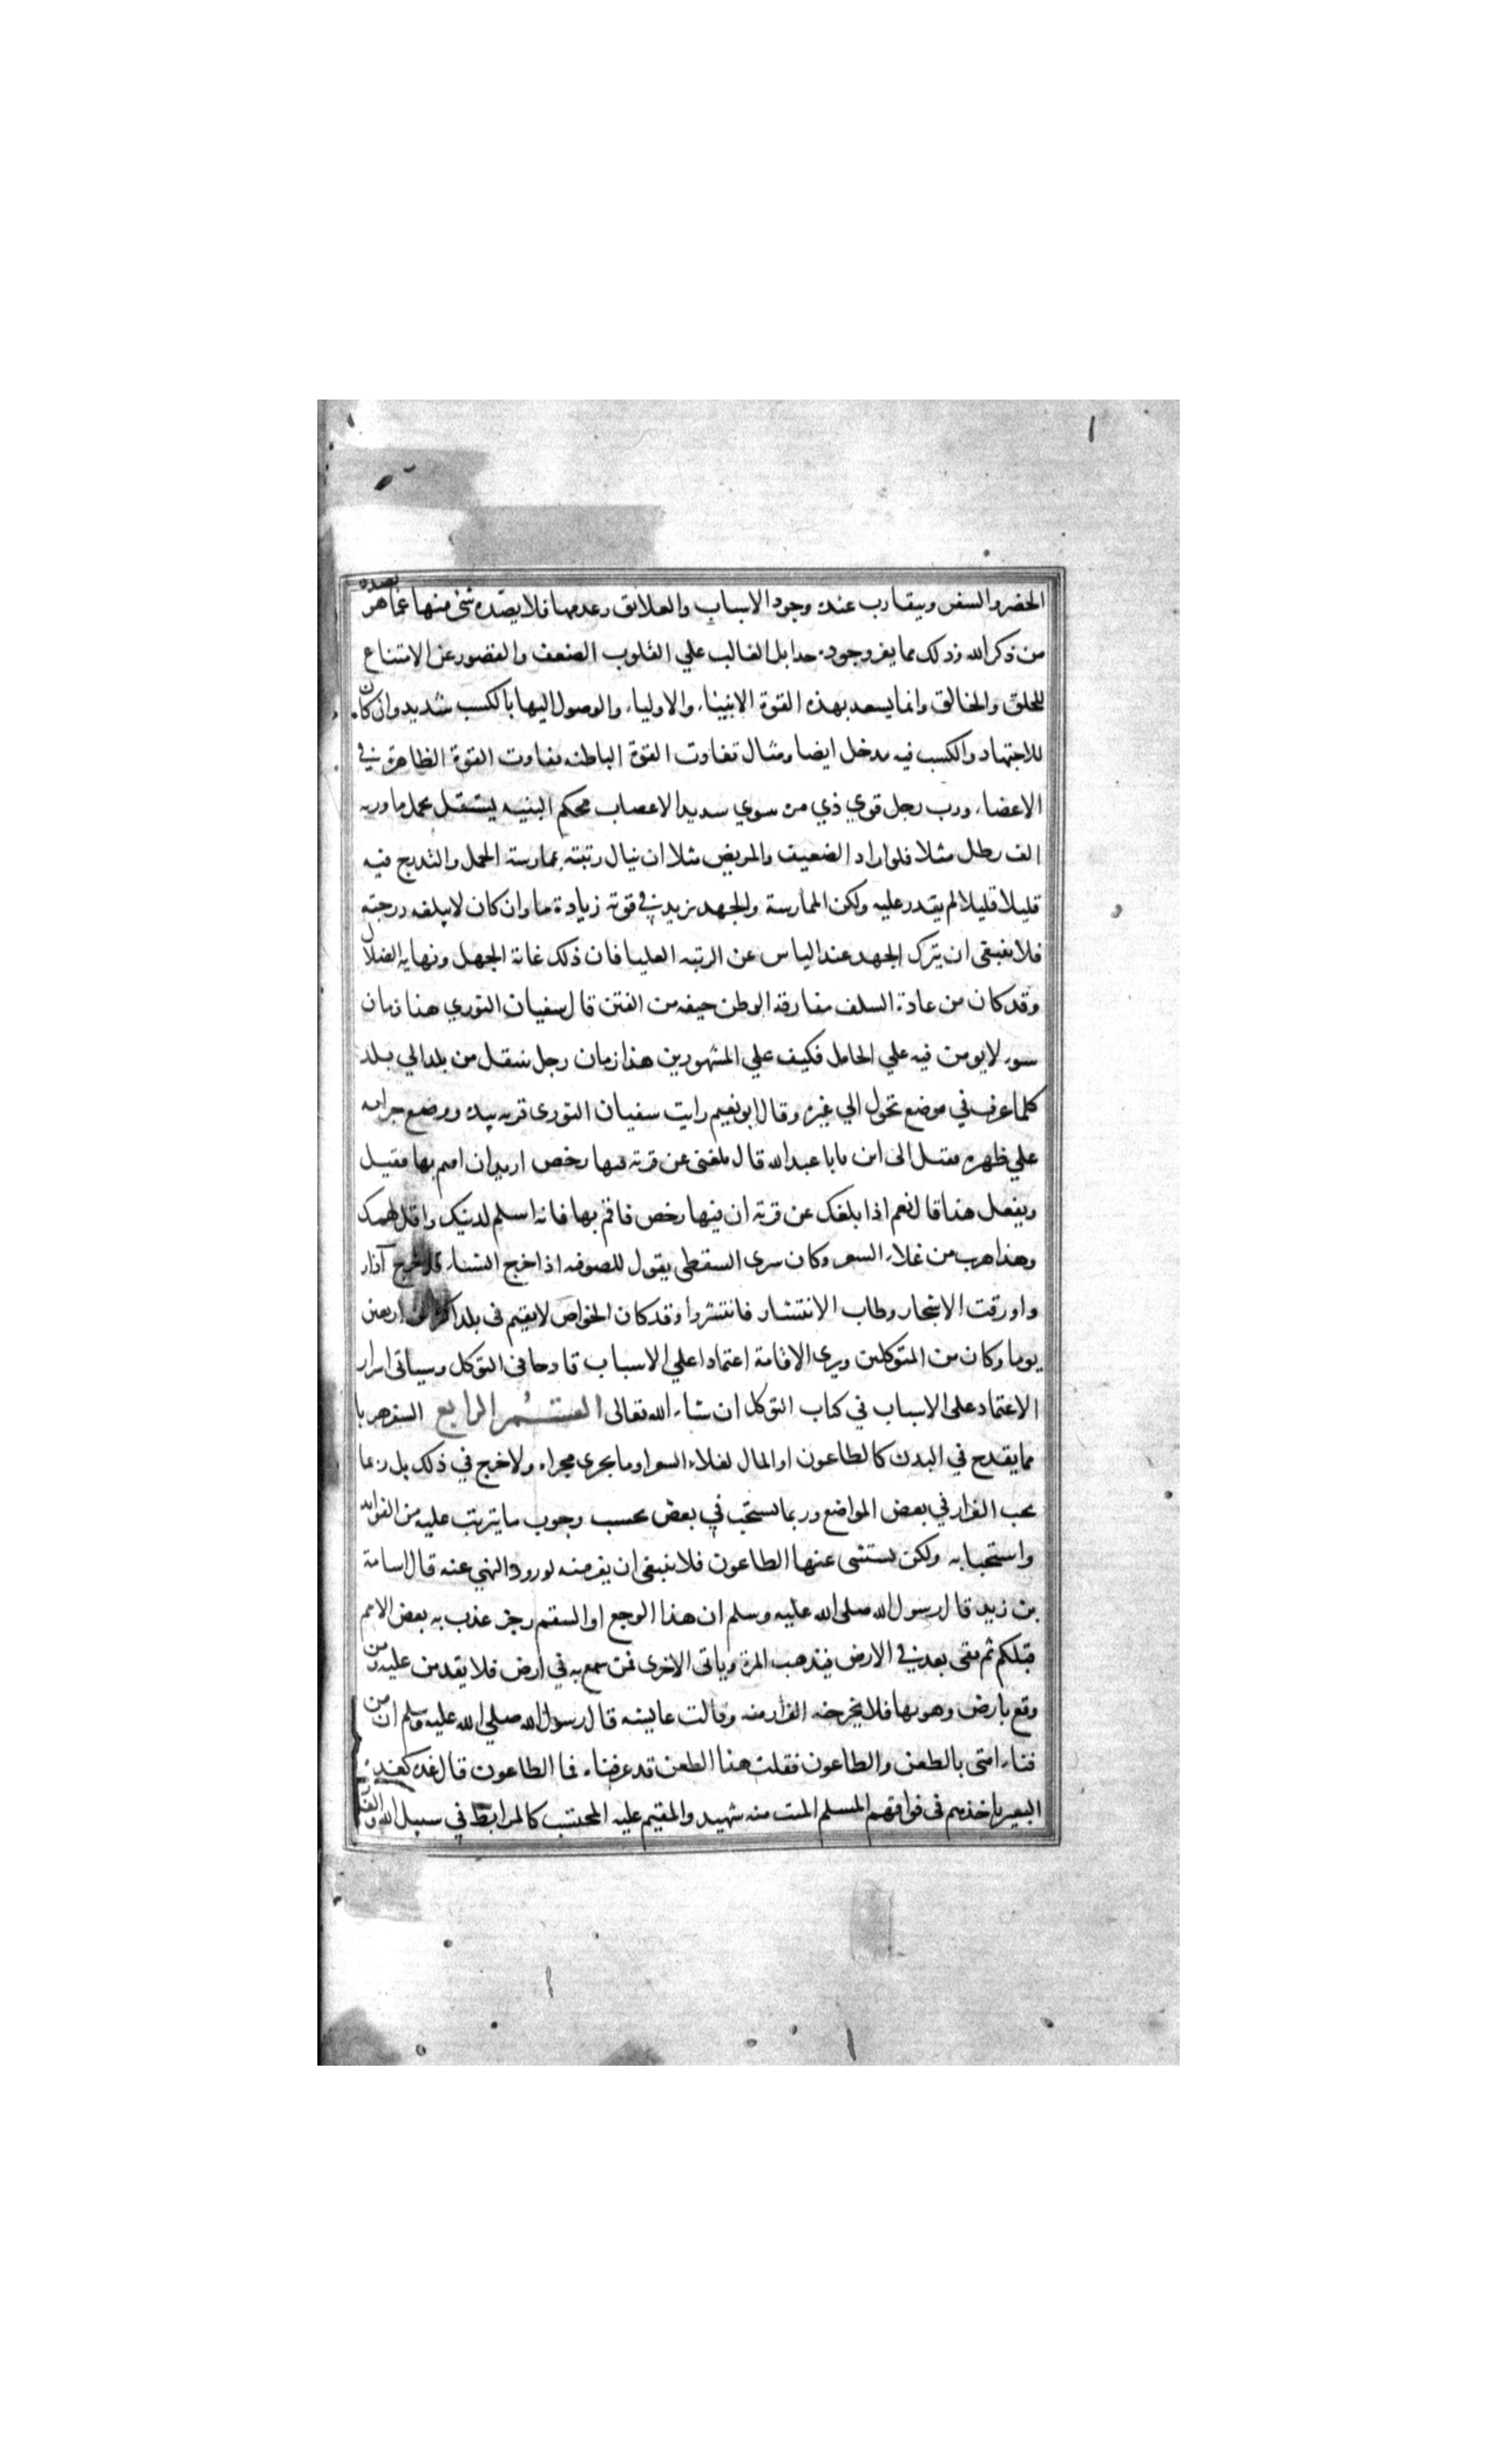 الحضر والسفر ويتقارب عنده وجود الاسباب والعلائق وعدمها فلا يصده شئ منها عما هو بصدده
من ذكر الله وذلك مما يعز وجوده جدا بل الغالب علي القلوب الضعف والقصور عن الاتساع
للخلق والخالق وانما يسعد بهذه القوة الانبياء والاولياء والوصول اليها بالكسب شديد وان كان
للاجتهاد والكسب فيه مدخل ايضا ومثال تفاوت القوة الباطنه تفاوت القوة الظاهرة في
الاعضاء ورب رجل قوي ذي من سوي سديد الاعصاب محكم البنيه يستقل بحمل ما وزنه
الف رطل مثلا فلو اراد الضعيف والمريض مثلا ان ينال رتبته بممارسة الحمل والتدريج فيه
قليلا قليلا لم يقدر عليه ولكن الممارسة والجهد يزيد في قوته زيادة ما وان كان لا يبلغه درجته
فلا ينبغي ان يترك الجهد عند الياس عن الرتبه العليا فان ذلك غاية الجهل ونهاية الضلال
وقد كان من عادة السلف مفارقة الوطن خيفه من الفتن قال سفيان الثوري هذا زمان
سوء لا يومن فيه علي الخامل فكيف علي المشهورين هذا زمان رجل ينتقل من بلد الي بلد
كلما عرف في موضع تحول الي غيره وقال ابو نعيم رايت سفيان الثوري قربه بيده ووضع جرابه
علي ظهره فقيل الى اين يا با عبد الله قال بلغني عن قرية فيها رخص اريد ان اقيم بها فقيل
ويفعل هذا قال نعم اذا بلغك عن قرية ان فيها رخص فاقم بها فانه اسلم لدينك واقل لهمك
وهذا هرب من غلاء السعر وكان سرى السقطي يقول للصوفيه اذا خرج الشتاء فلا خرج آذار
واورقت الاشجار وطاب الانتشار فانتشروا وقد كان الخواص لا يقيم في بلد اكثر من اربعين
يوما وكان من المتوكلين ويرى الاقامة اعتمادا علي الاسباب قادحا في التوكل وسياتي اسرار
الاعتماد على الاسباب في كتاب التوكل ان شاء الله تعالى القسم الرابع السفر هربا
مما يقدح في البدن كالطاعون او المال لغلاء السعر او ما يجري مجراه ولا خرج في ذلك بل ربما
يجب الفرار في بعض المواضع وربما يستحب في بعض بحسب وجوب ما يترتب عليه من الفوائد
واستحبابه ولكن يستثنى عنها الطاعون فلا ينبغي ان يفر منه لورود النهي عنه قال اسامة
بن زيد قال رسول الله صلى الله عليه وسلم ان هذا الوجع او السقم رجز عذب به بعض الامم
قبلكم ثم بقى بعد في الارض فيذهب المرة وياتي الاخرى فمن سمع به في ارض فلا يقدمن عليه ومن
وقع بارض وهو بها فلا يخرجنه الفرار منه وقالت عايشه قال رسول الله صلي الله عليه وسلم ان من
فناء امتى بالطعن والطاعون فقلت هذا الطعن قد عرفناه فما الطاعون قال غدة كغدة
البعير ياخذهم في فواقهم المسلم الميت منه شهيد والمقيم عليه المحتسب كالمرابط في سبيل الله والفار